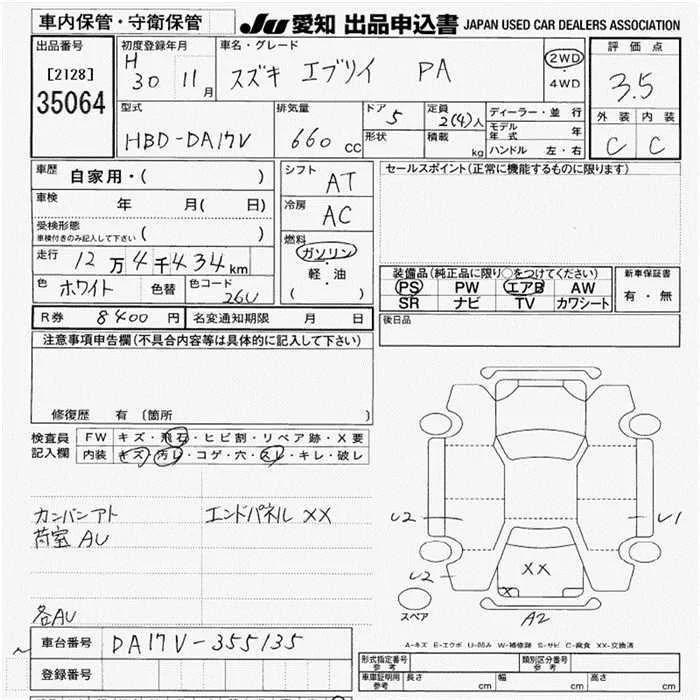 車内保管・守衛保管 JU 愛知 出品申込書 JAPAN USED CAR DEALERS ASSOCIATION
出品番号
[2128]
35064
初度登録年月
H 30 11月
車名・グレード
スズキ エブリイ PA
2WD
4WD
評価点
3.5
外装 内装
C C
型式
HBD-DA17V
排気量
660 CC
ドア 5
形状
定員 2(4)人
積載 kg
ディーラー・並行
モデル年式 年
ハンドル 左・右
車歴 自家用・( )
車検 年 月( 日)
受検形態
車検付きのみ記入して下さい ( )
走行 12万4千434km
色 ホワイト 色替 色コード 26U
シフト AT
冷房 AC
燃料
ガソリン
軽・油
( )
セールスポイント(正常に機能するものに限ります)
装備品(純正品に限り○をつけてください)
PS PW エアB AW
SR ナビ TV カワシート
新車保証書
有・無
R券 8400円 名変通知期限 月 日
後日品
注意事項申告欄(不具合内容等は具体的に記入して下さい)
修復歴 有 〔箇所 〕
検査員記入欄
FW キズ・飛石・ヒビ割・リペア跡・X要
内装 キズ・汚レ・コゲ・穴・スレ・キレ・破レ
カンバンアト エンドパネル XX
荷室 AU
各AU
U2
U1
U2
XX
X
A2
スペア
A-キズ E-エクボ U-凹み W-補修跡 S-サビ C-腐食 XX-交換済
車台番号 DA17V-355135
登録番号
形式指定番号 参考 類別区分番号 参考
車庫証明用 参考 長さ cm 幅 cm 高さ cm